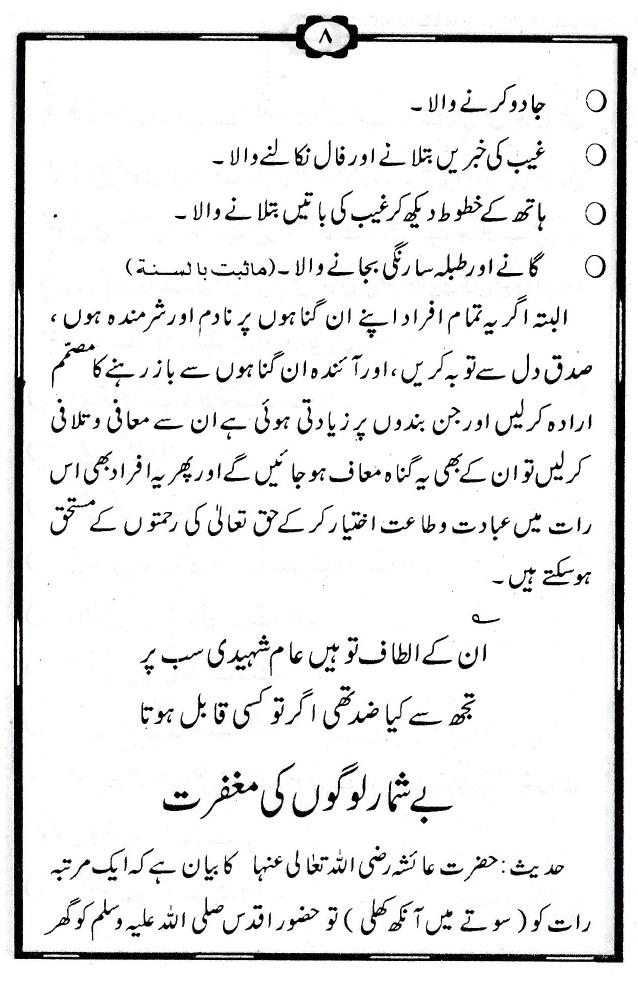 ۸
○ جادو کرنے والا ۔
○ غیب کی خبریں بتلانے اور فال نکالنے والا ۔
○ ہاتھ کے خطوط دیکھ کر غیب کی باتیں بتلانے والا ۔
○ گانے اور طبلہ سارنگی بجانے والا ۔ (ماثبت بالسنة)
البتہ اگر یہ تمام افراد اپنے ان گناہوں پر نادم اور شرمندہ ہوں ،
صدق دل سے توبہ کریں ، اور آئندہ ان گناہوں سے باز رہنے کا مصمّم
ارادہ کرلیں اور جن بندوں پر زیادتی ہوئی ہے ان سے معافی و تلافی
کرلیں تو ان کے بھی یہ گناہ معاف ہوجائیں گے اور پھر یہ افراد بھی اس
رات میں عبادت و طاعت اختیار کر کے حق تعالیٰ کی رحمتوں کے مستحق
ہوسکتے ہیں ۔
؎
ان کے الطاف تو ہیں عام شہیدی سب پر
تجھ سے کیا ضد تھی اگر تو کسی قابل ہوتا
بے شمار لوگوں کی مغفرت
حدیث : حضرت عائشہ رضی اللہ تعالیٰ عنہا کا بیان ہے کہ ایک مرتبہ
رات کو ( سوتے میں آنکھ کھلی ) تو حضور اقدس صلی اللہ علیہ وسلم کو گھر